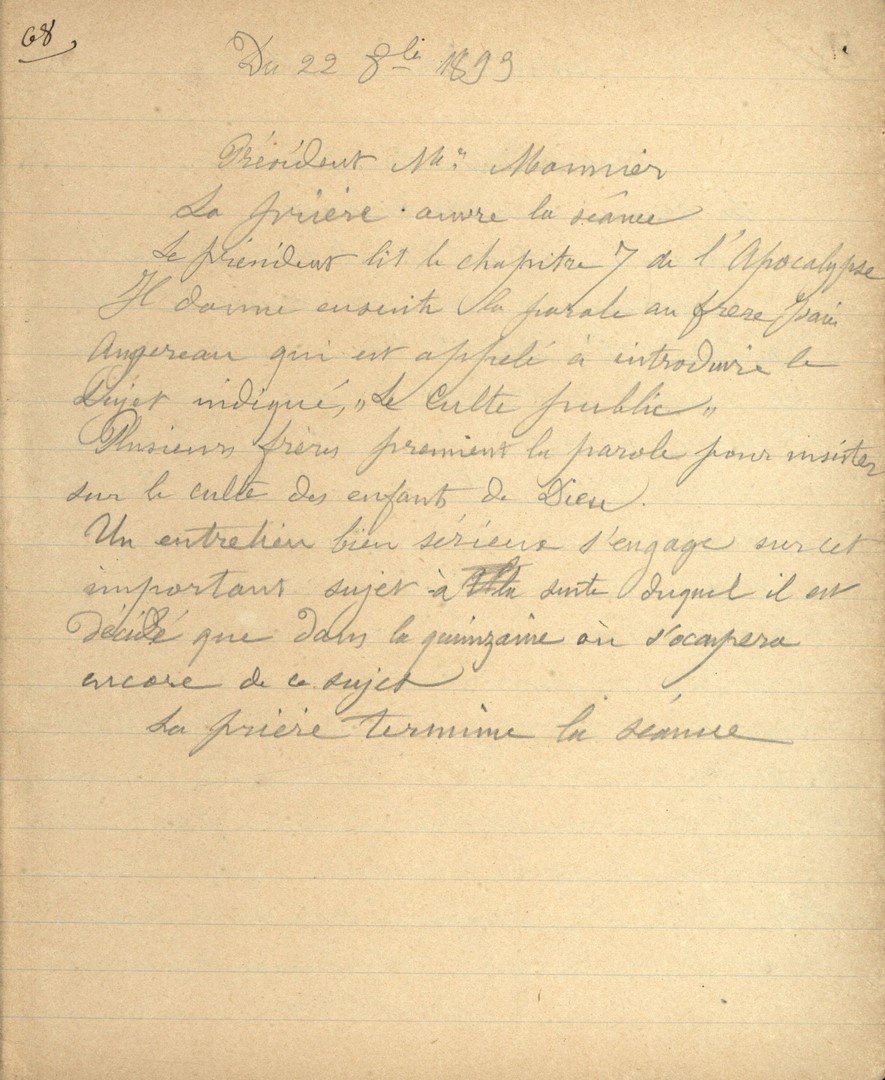 68
Du 22 8bre 1899
Président Mr Monnier
La prière ouvre la séance
Le président lit le chapitre 7 de l'Apocalypse
Il donne ensuite la parole au frère
Angereau qui est appelé à introduire le
Sujet indiqué, "Le Culte public"
Plusieurs frères prennent la parole pour insister
sur le culte des enfants de Dieu.
Un entretien bien sérieux s'engage sur cet
important sujet à la suite duquel il est
décidé que dans la quinzaine on s'occupera
encore de ce sujet
La prière termine la séance